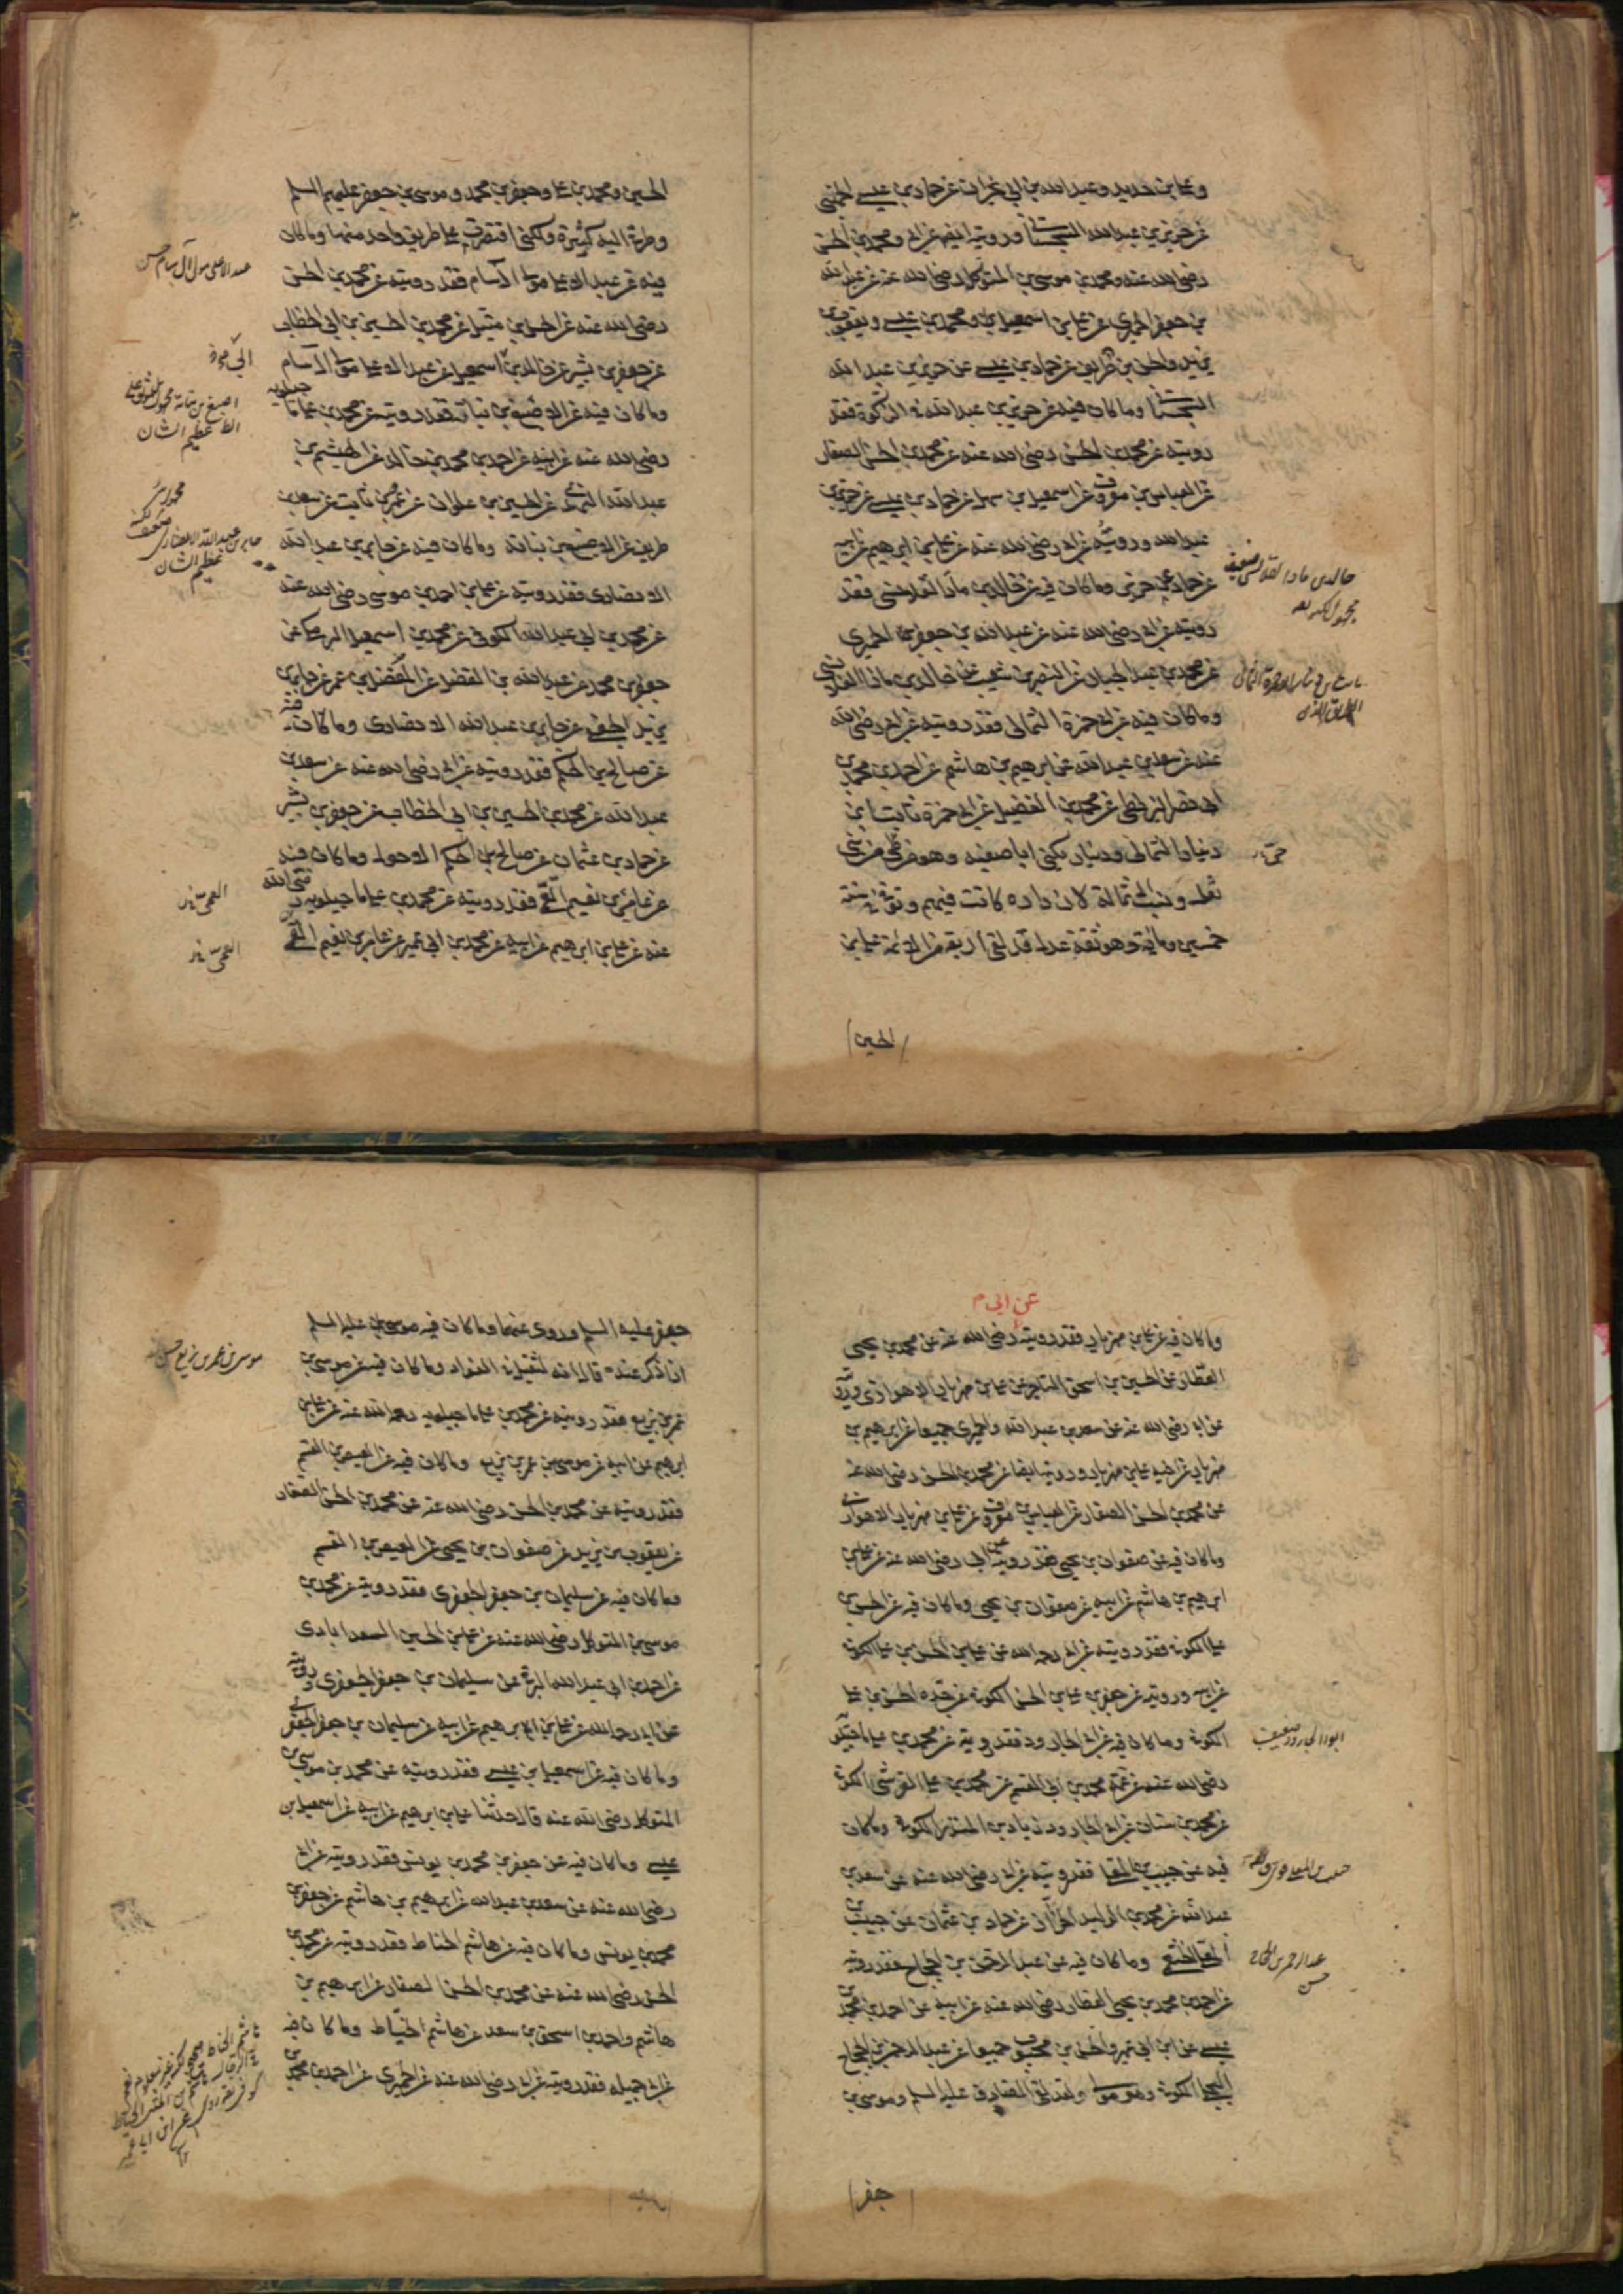 وعلي بن حديد وعبد الله بن ابي نجران عن حماد بن عيسى الجهني
عن حريز بن عبد الله السجستاني ورويته ايضا عن ابي ومحمد بن الحسن
رضي الله عنه ومحمد بن موسى بن المتوكل رضي الله عنه عن عبد الله
بن جعفر الحميري عن علي بن اسمعيل ومحمد بن عيسى ويعقوب بن
يزيد والحسن بن ظريف عن حماد بن عيسى عن حريز بن عبد الله
السجستاني وما كان فيه عن حريز بن عبد الله في الزكوة فقد
رويته عن محمد بن الحسن رضي الله عنه عن محمد بن الحسن الصفار
عن العباس بن معروف عن اسمعيل بن سهل عن حماد بن عيسى عن حريز بن
عبد الله ورويته عن ابي رضي الله عنه عن علي بن ابرهيم عن ابيه
عن حماد عن حريز وما كان فيه عن خالد بن ماد القلانسي فقد
رويته عن ابي رضي الله عنه عن عبد الله بن جعفر الحميري
عن محمد بن عبد الجبار عن النضر بن شعيب عن خالد بن ماد القلانسي
وما كان فيه عن ابي حمزة الثمالي فقد رويته عن ابي رضي الله
عنه عن سعد بن عبد الله عن ابرهيم بن هاشم عن احمد بن محمد بن
ابي نصر البزنطي عن محمد بن الفضيل عن ابي حمزة ثابت بن
دينار الثمالي ودينار يكنى ابا صفيه وهو من طي من بني
ثعل ونسب الى ثمالة لان داره كانت فيهم وتوفي سنة
خمسين ومائة وهو ثقة عدل قد لقي اربعة من الائمة علي بن
خالد بن ماد القلانسي ضعيف
الحسين
الحسين ومحمد بن علي وجعفر بن محمد وموسى بن جعفر عليهم السلم
وطرقي اليه كثيرة ولكني اقتصرت على طريق واحد منها وما كان
فيه عن عبد الاعلى مولى ال سام فقد رويته عن محمد بن الحسن
رضي الله عنه عن الحسن بن متيل عن محمد بن الحسين بن ابي الخطاب
عن جعفر بن بشير عن خالد بن ابي اسمعيل عن عبد الاعلى مولى ال سام
وما كان فيه عن الاصبغ بن نباتة فقد رويته عن محمد بن علي ماجيلويه
رضي الله عنه عن ابيه عن احمد بن محمد بن خالد عن الهيثم بن
عبد الله النهدي عن الحسين بن علوان عن عمرو بن ثابت عن سعد بن
طريف عن الاصبغ بن نباتة وما كان فيه عن جابر بن عبد الله
الانصاري فقد رويته عن علي بن احمد بن موسى رضي الله عنه
عن محمد بن ابي عبد الله الكوفي عن محمد بن اسمعيل البرمكي عن
جعفر بن محمد عن عبد الله بن الفضل عن المفضل بن عمر عن جابر بن
يزيد الجعفي عن جابر بن عبد الله الانصاري وما كان فيه
عن صالح بن الحكم فقد رويته عن ابي رضي الله عنه عن سعد بن
عبد الله عن محمد بن الحسين بن ابي الخطاب عن جعفر بن بشير
عن حماد بن عثمان عن صالح بن الحكم الاحول وما كان فيه
عن عامر بن نعيم القمي فقد رويته عن محمد بن علي ماجيلويه رضي الله
عنه عن علي بن ابرهيم عن ابيه عن محمد بن ابي عمير عن عامر بن نعيم القمي
عبد الاعلى مولى آل سام حسن
جابر بن عبد الله الانصاري
عظيم الشان
عن ابي م
وما كان فيه عن علي بن مهزيار فقد رويته رضي الله عنه عن محمد بن يحيى
العطار عن الحسين بن اسحق التاجر عن علي بن مهزيار الاهوازي ورويته
عن ابي رضي الله عنه عن سعد بن عبد الله والحميري جميعا عن ابرهيم بن
مهزيار عن اخيه علي بن مهزيار ورويته ايضا عن محمد بن الحسن رضي الله عنه
عن محمد بن الحسن الصفار عن العباس بن معروف عن علي بن مهزيار الاهوازي
وما كان فيه عن صفوان بن يحيى فقد رويته عن ابي رضي الله عنه عن علي بن
ابرهيم بن هاشم عن ابيه عن صفوان بن يحيى وما كان فيه عن الحسن بن
علي الكوفي فقد رويته عن ابي رحمه الله عن علي بن الحسن بن علي الكوفي
عن ابيه ورويته عن جعفر بن علي بن الحسن الكوفي عن جده الحسن بن علي
الكوفي وما كان فيه عن ابي الجارود فقد رويته عن محمد بن علي ماجيلويه
رضي الله عنه عن عمه محمد بن ابي القسم عن محمد بن علي القرشي الكوفي
عن محمد بن سنان عن ابي الجارود زياد بن المنذر الكوفي وما كان
فيه عن حبيب بن المعلى فقد رويته عن ابي رضي الله عنه عن سعد بن
عبد الله عن محمد بن الوليد الخزاز عن حماد بن عثمان عن حبيب بن
المعلى الخثعمي وما كان فيه عن عبد الرحمن بن الحجاج فقد رويته
عن احمد بن محمد بن يحيى العطار رضي الله عنه عن ابيه عن احمد بن محمد بن
عيسى عن ابن ابي عمير والحسن بن محبوب جميعا عن عبد الرحمن بن الحجاج
البجلي الكوفي وهو مولى ولقد لقي الصادق عليه السلم وموسى بن
ابو الجارود ضعيف
عبد الرحمن بن الحجاج
حسن
جعفر
جعفر عليه السلم وروى عنهما وما كان فيه موسى بن عليه السلم
اذا ذكر عنده قال انه لثقيل في الفؤاد وما كان فيه عن موسى بن
عمر بن بزيع فقد رويته عن محمد بن علي ماجيلويه رحمه الله عنه عن علي بن
ابرهيم عن ابيه عن موسى بن عمر بن بزيع وما كان فيه عن العيص بن القسم
فقد رويته عن محمد بن الحسن رضي الله عنه عن محمد بن الحسن الصفار
عن يعقوب بن يزيد عن صفوان بن يحيى عن العيص بن القسم
وما كان فيه عن سليمان بن جعفر الجعفري فقد رويته عن محمد بن
موسى بن المتوكل رضي الله عنه عن علي بن الحسين السعدابادي
عن احمد بن ابي عبد الله البرقي عن سليمان بن جعفر الجعفري ورويته
عن ابي رحمه الله عن علي بن ابرهيم عن ابيه عن سليمان بن جعفر الجعفري
وما كان فيه عن اسمعيل بن عيسى فقد رويته عن محمد بن موسى بن
المتوكل رضي الله عنه قال حدثنا علي بن ابرهيم عن ابيه عن اسمعيل بن
عيسى وما كان فيه عن جعفر بن محمد بن يونس فقد رويته عن ابي
رضي الله عنه عن سعد بن عبد الله عن ابرهيم بن هاشم عن جعفر بن
محمد بن يونس وما كان فيه عن هاشم الحناط فقد رويته عن محمد بن
الحسن رضي الله عنه عن محمد بن الحسن الصفار عن ابرهيم بن
هاشم واحمد بن اسحق بن سعد عن هاشم الحناط وما كان فيه
عن ابي جميله فقد رويته عن ابي رضي الله عنه عن الحميري عن احمد بن محمد بن
موسى بن عمر بن بزيع حسن